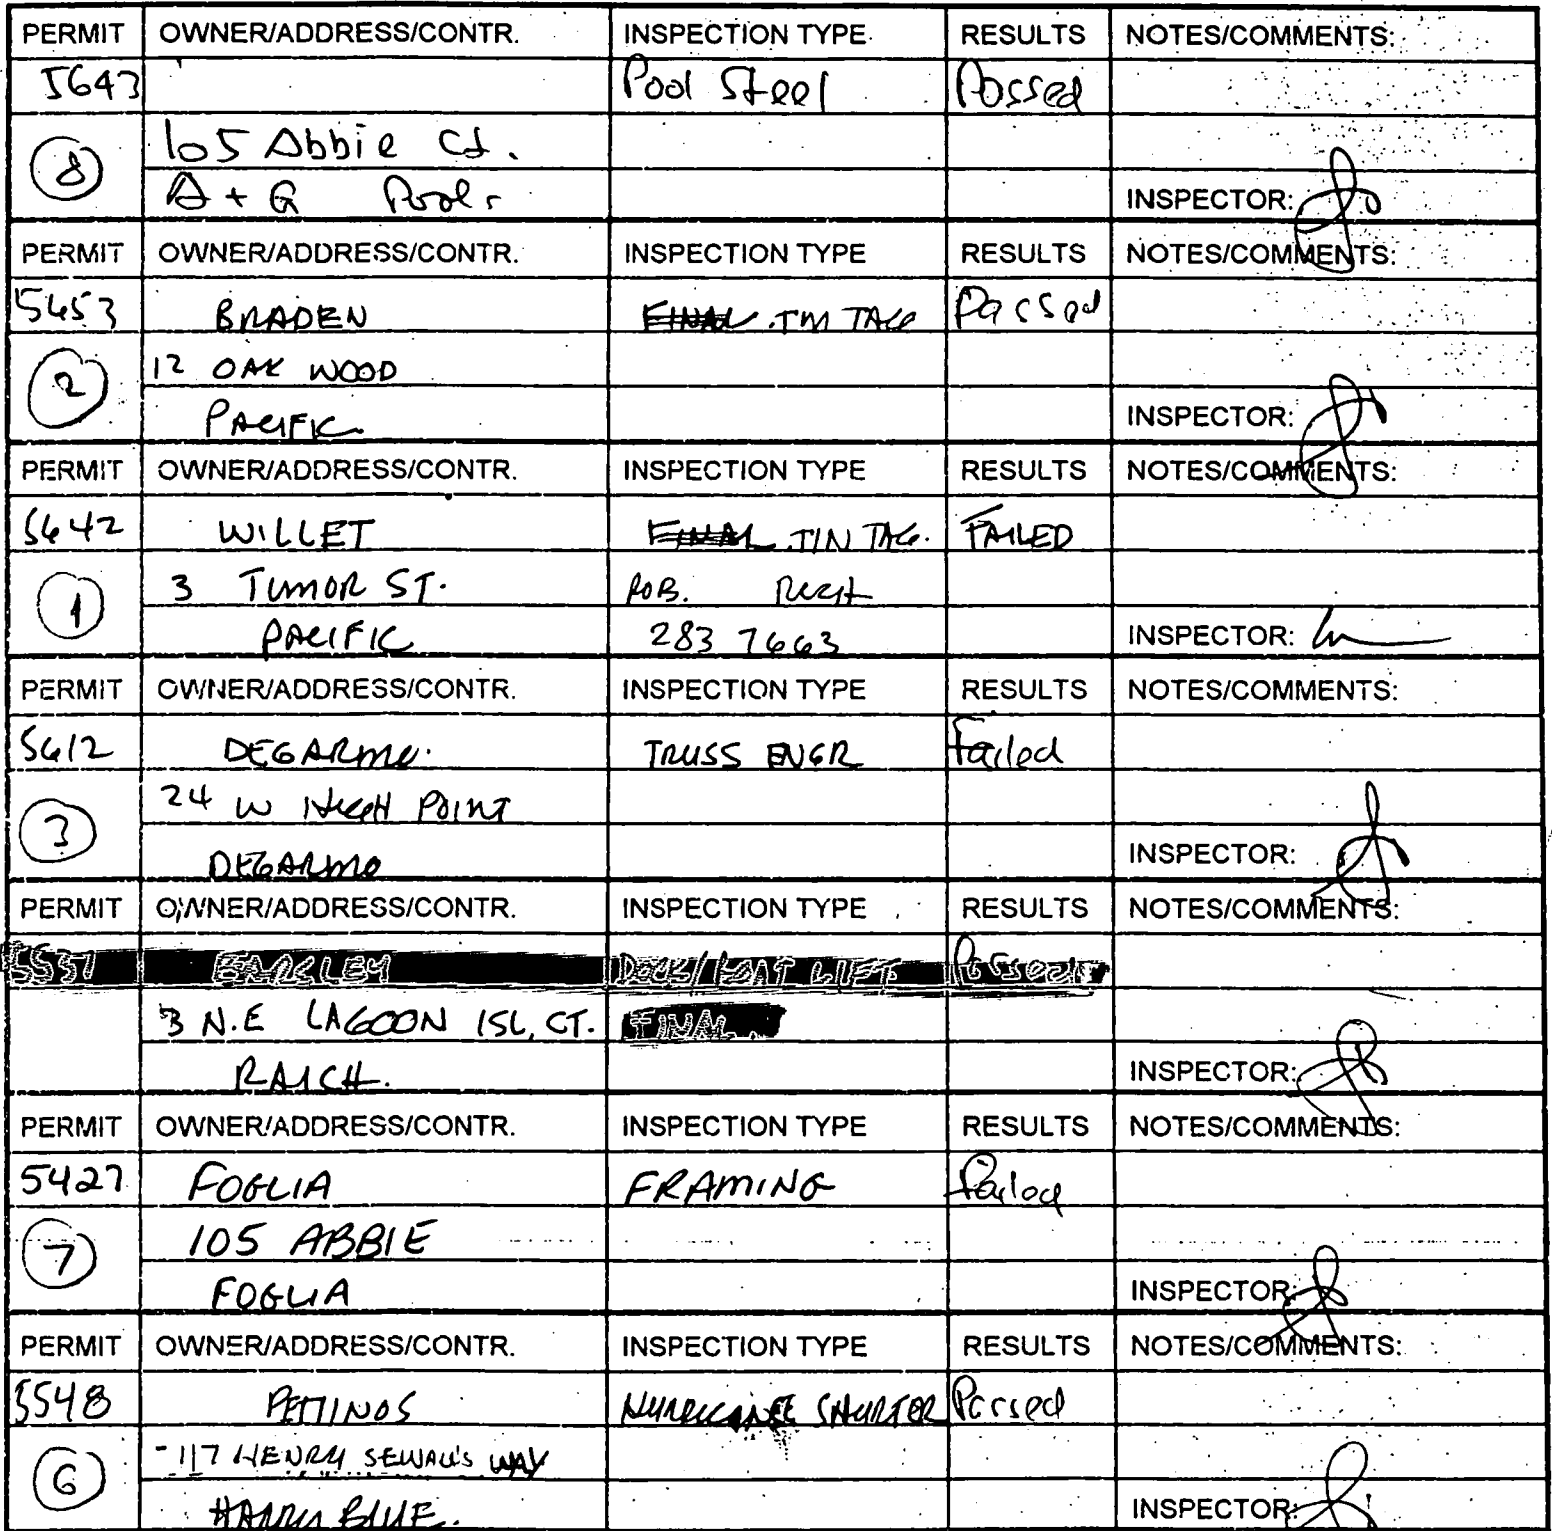 PERMIT OWNER/ADDRESS/CONTR. INSPECTION TYPE RESULTS NOTES/COMMENTS:
5643 Pool Steel Passed
8 105 Abbie Ct.
A + G Pools INSPECTOR:
PERMIT OWNER/ADDRESS/CONTR. INSPECTION TYPE RESULTS NOTES/COMMENTS:
5653 BRADEN FINAL TIN TAG Passed
2 12 OAK WOOD
PACIFIC INSPECTOR:
PERMIT OWNER/ADDRESS/CONTR. INSPECTION TYPE RESULTS NOTES/COMMENTS:
5642 WILLET FINAL TIN TAG. FAILED
1 3 TUMOR ST.
PACIFIC 283 7663 INSPECTOR:
PERMIT OWNER/ADDRESS/CONTR. INSPECTION TYPE RESULTS NOTES/COMMENTS:
5612 DEGARMO. TRUSS ENGR Failed
3 24 W HIGH POINT
DEGARMO INSPECTOR:
PERMIT OWNER/ADDRESS/CONTR. INSPECTION TYPE RESULTS NOTES/COMMENTS:
5537 DOCK/BOAT LIFT Passed
3 N.E LAGOON ISL, CT. FINAL
INSPECTOR:
PERMIT OWNER/ADDRESS/CONTR. INSPECTION TYPE RESULTS NOTES/COMMENTS:
5427 FOGLIA FRAMING Failed
7 105 ABBIE
FOGLIA INSPECTOR:
PERMIT OWNER/ADDRESS/CONTR. INSPECTION TYPE RESULTS NOTES/COMMENTS:
5548 PETTINOS HURRICANE SHUTTER Passed
6 117 HENRY SEWALL'S WAY
HARRY BLUE. INSPECTOR: